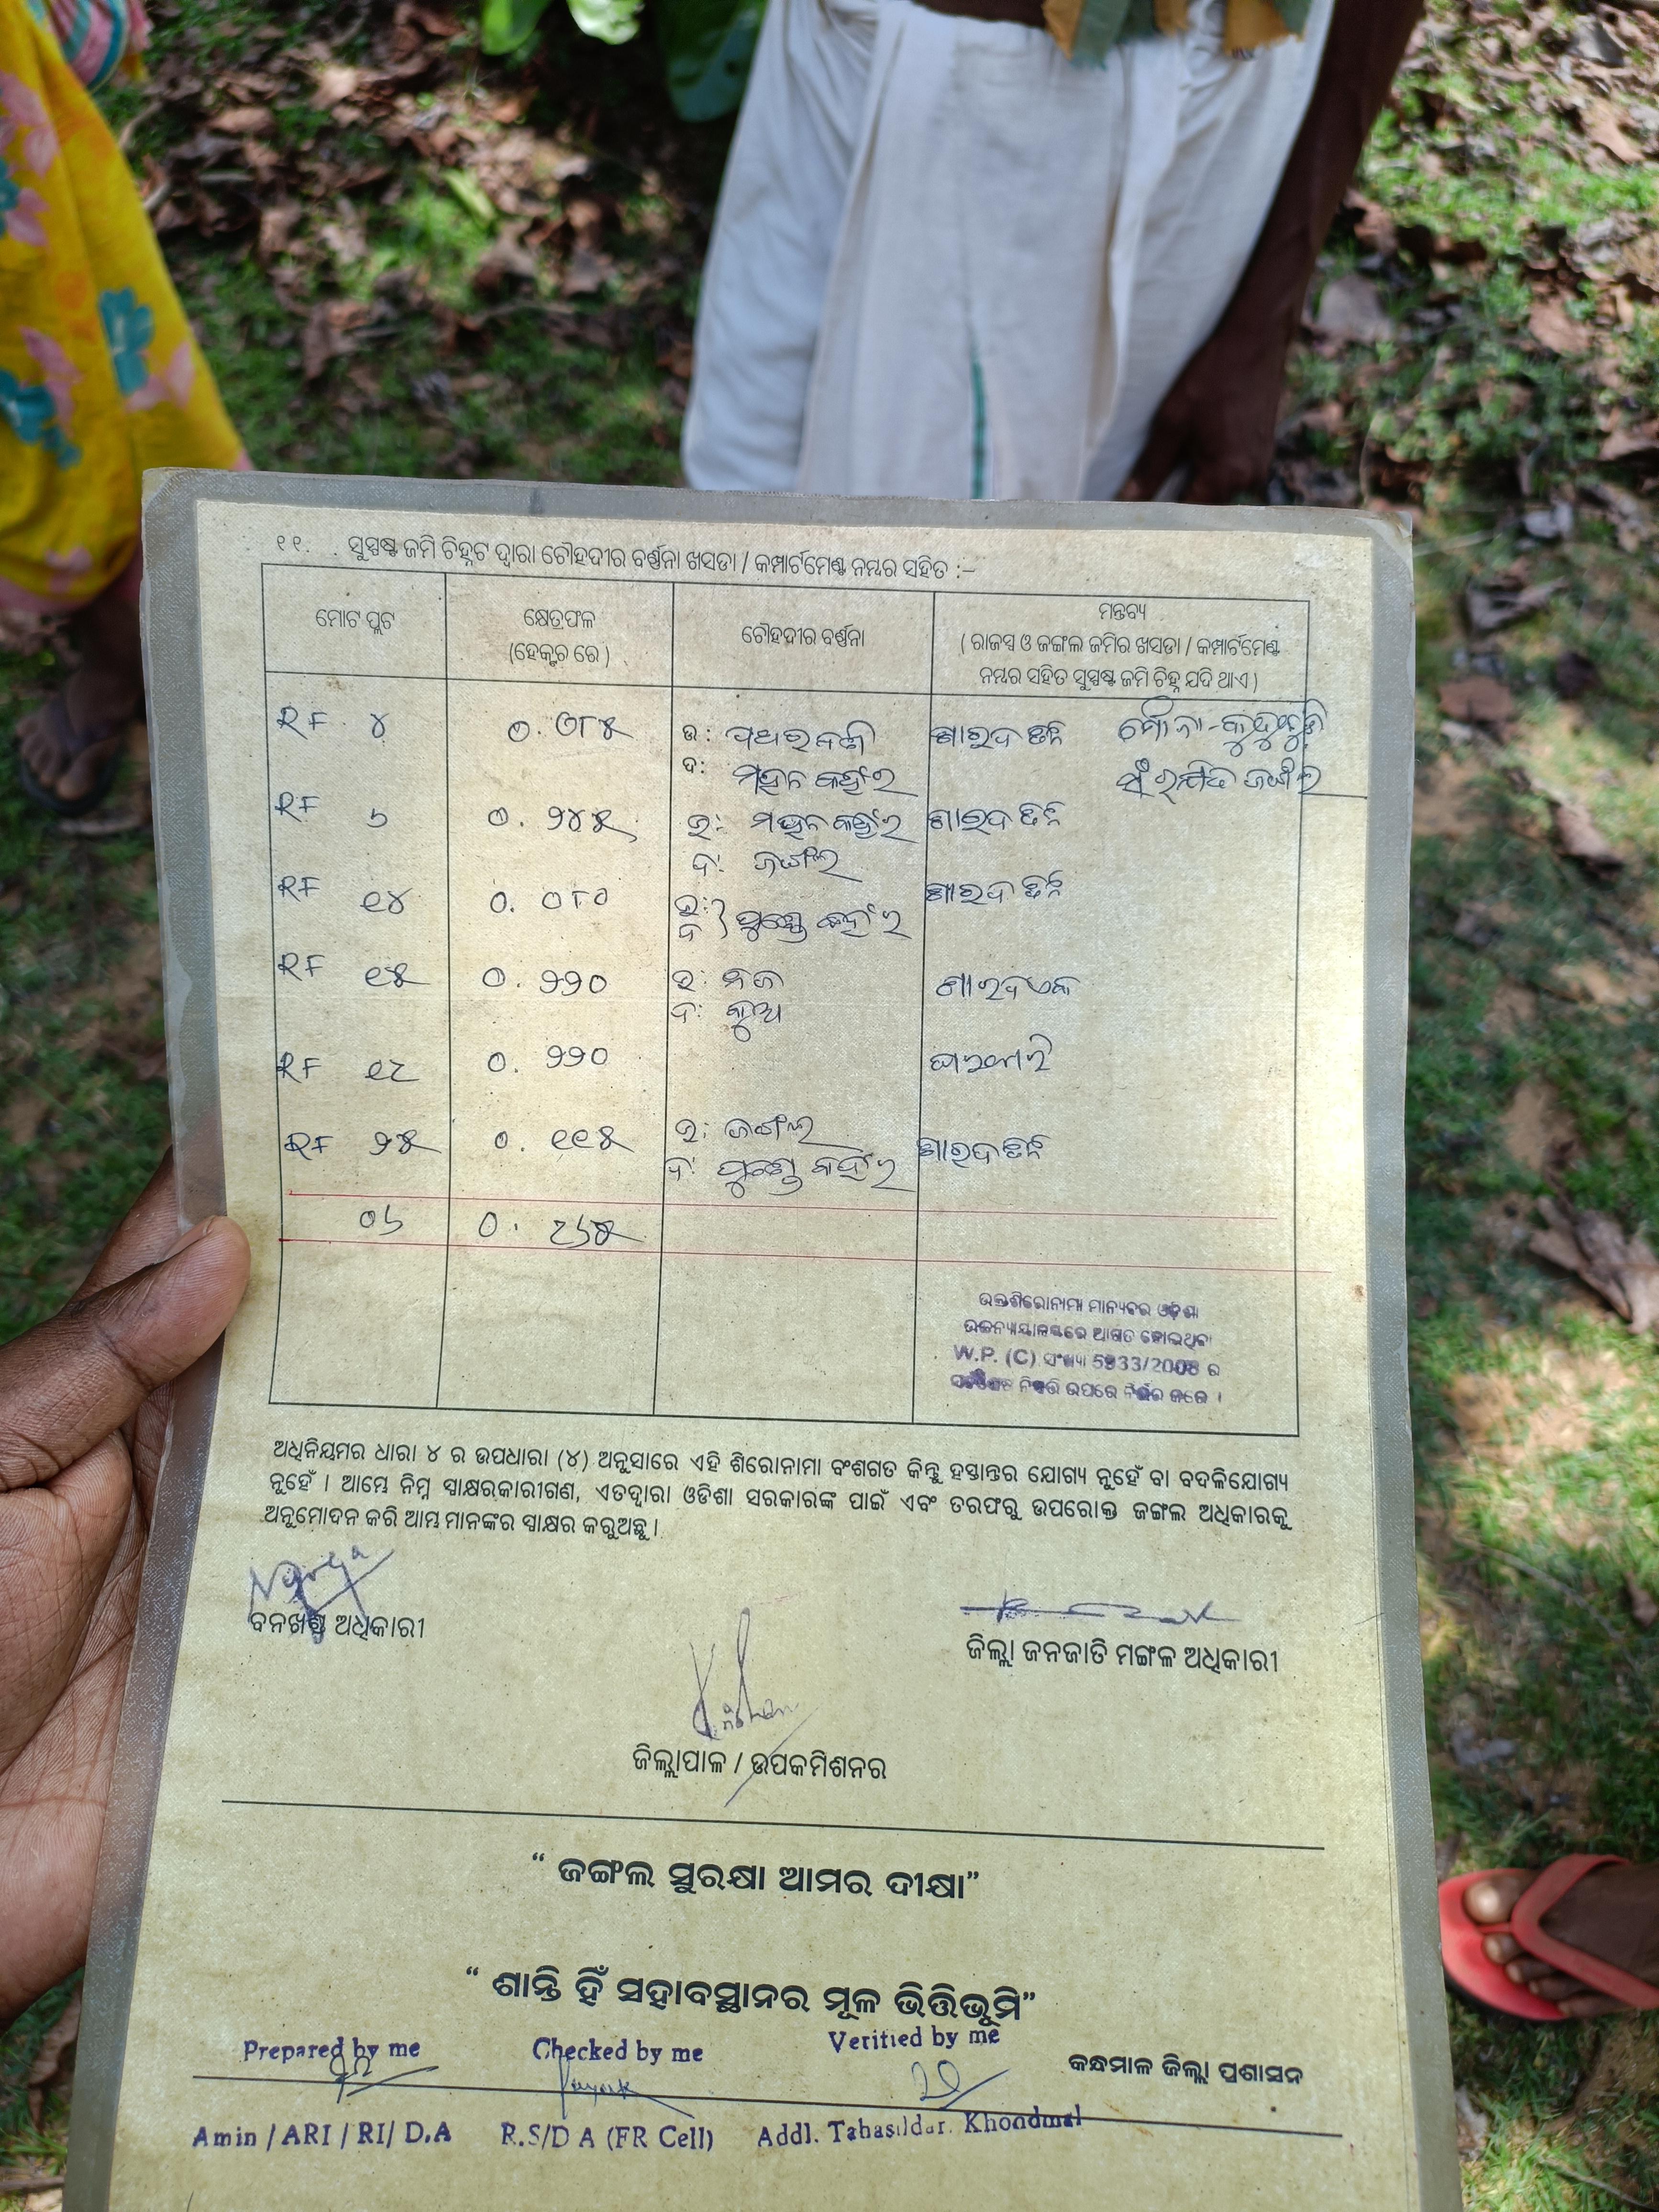 ୧୧. ସୁସ୍ପଷ୍ଟ ଜମି ଚିହ୍ନଟ ଦ୍ୱାରା ଚୌହଦୀର ବର୍ଣ୍ଣନା ଖସଡା / କମ୍ପାର୍ଟମେଣ୍ଟ ନମ୍ବର ସହିତ :–
ମୋଟ ପ୍ଲଟ
କ୍ଷେତ୍ରଫଳ
(ହେକ୍ଟଚ ରେ)
ଚୌହଦୀର ବର୍ଣ୍ଣନା
ମନ୍ତବ୍ୟ
( ରାଜସ୍ୱ ଓ ଜଙ୍ଗଲ ଜମିର ଖସଡା / କମ୍ପାର୍ଟମେଣ୍ଟ
ନମ୍ବର ସହିତ ସୁସ୍ପଷ୍ଟ ଜମି ଚିହ୍ନ ଯଦି ଥାଏ )
RF ୪ ୦.୦୮୫ ଉ: ଶାରଦ ତିନି ମୌଜା-
ଦ: ମହନ କହଁର ସଂରକ୍ଷିତ ଜଙ୍ଗଲ
RF ୬ ୦.୨୪୫ ଉ: ମହନ କହଁର ଶାରଦ ତିନି
ଦ: ଜଙ୍ଗଲ
RF ୧୪ ୦.୦୮୦ ଉ: ଦ: କହଁର ଶାରଦ ତିନି
RF ୧୫ ୦.୨୨୦ ଉ: ନଜ ଶାରଦ ଏକ
ଦ:
RF ୧୯ ୦.୨୨୦ ଘରବାରି
RF ୨୫ ୦.୧୧୫ ଉ: ଜଙ୍ଗଲ ଶାରଦ ତିନି
ଦ: କହଁର
୦୬ ୦.୯୬୫
ଉକ୍ତ ଶିରୋନାମା ମାନ୍ୟବର ଓଡ଼ିଶା
ଉଚ୍ଚନ୍ୟାୟାଳୟରେ ଆଗତ ହୋଇଥିବା
W.P. (C) ସଂଖ୍ୟା 5933/2008 ର
ଉପରେ ନିର୍ଭର କରେ ।
ଅଧିନିୟମର ଧାରା ୪ ର ଉପଧାରା (୪) ଅନୁସାରେ ଏହି ଶିରୋନାମା ବଂଶଗତ କିନ୍ତୁ ହସ୍ତାନ୍ତର ଯୋଗ୍ୟ ନୁହେଁ ବା ବଦଳିଯୋଗ୍ୟ
ନୁହେଁ । ଆମ୍ଭେ ନିମ୍ନ ସ୍ୱାକ୍ଷରକାରୀଗଣ, ଏତଦ୍ୱାରା ଓଡିଶା ସରକାରଙ୍କ ପାଇଁ ଏବଂ ତରଫରୁ ଉପରୋକ୍ତ ଜଙ୍ଗଲ ଅଧିକାରକୁ
ଅନୁମୋଦନ କରି ଆମ୍ଭ ମାନଙ୍କର ସ୍ୱାକ୍ଷର କରୁଅଛୁ ।
ବନଖଣ୍ଡ ଅଧିକାରୀ
ଜିଲ୍ଲା ଜନଜାତି ମଙ୍ଗଳ ଅଧିକାରୀ
ଜିଲ୍ଲାପାଳ / ଉପକମିଶନର
“ ଜଙ୍ଗଲ ସୁରକ୍ଷା ଆମର ଦୀକ୍ଷା”
“ ଶାନ୍ତି ହିଁ ସହାବସ୍ଥାନର ମୂଳ ଭିତ୍ତିଭୂମି”
Prepared by me Checked by me Verified by me
କନ୍ଧମାଳ ଜିଲ୍ଲା ପ୍ରଶାସନ
Amin / ARI / RI/ D.A R.S/D A (FR Cell) Addl. Tahasildar. Khondmal